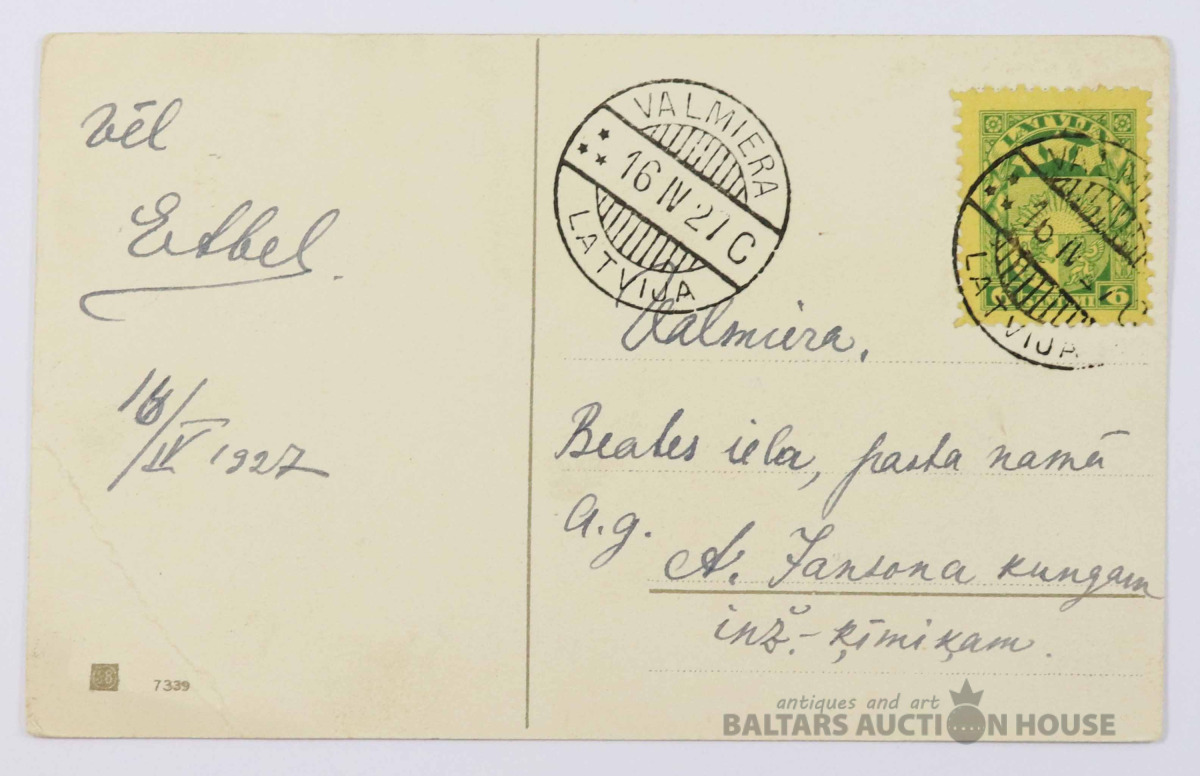 vēl
Etbel.
16/IV 1927
7339
VALMIERA
16 IV 27 C
LATVIJA
LATVIJA
VALMIERA
16 IV 27 C
LATVIJA
6 6
Valmiera,
Beates iela, pasta namā
A.g.
A. Jansona kungam
inž.-ķīmiķam.
antiques and art
BALTARS AUCTION HOUSE